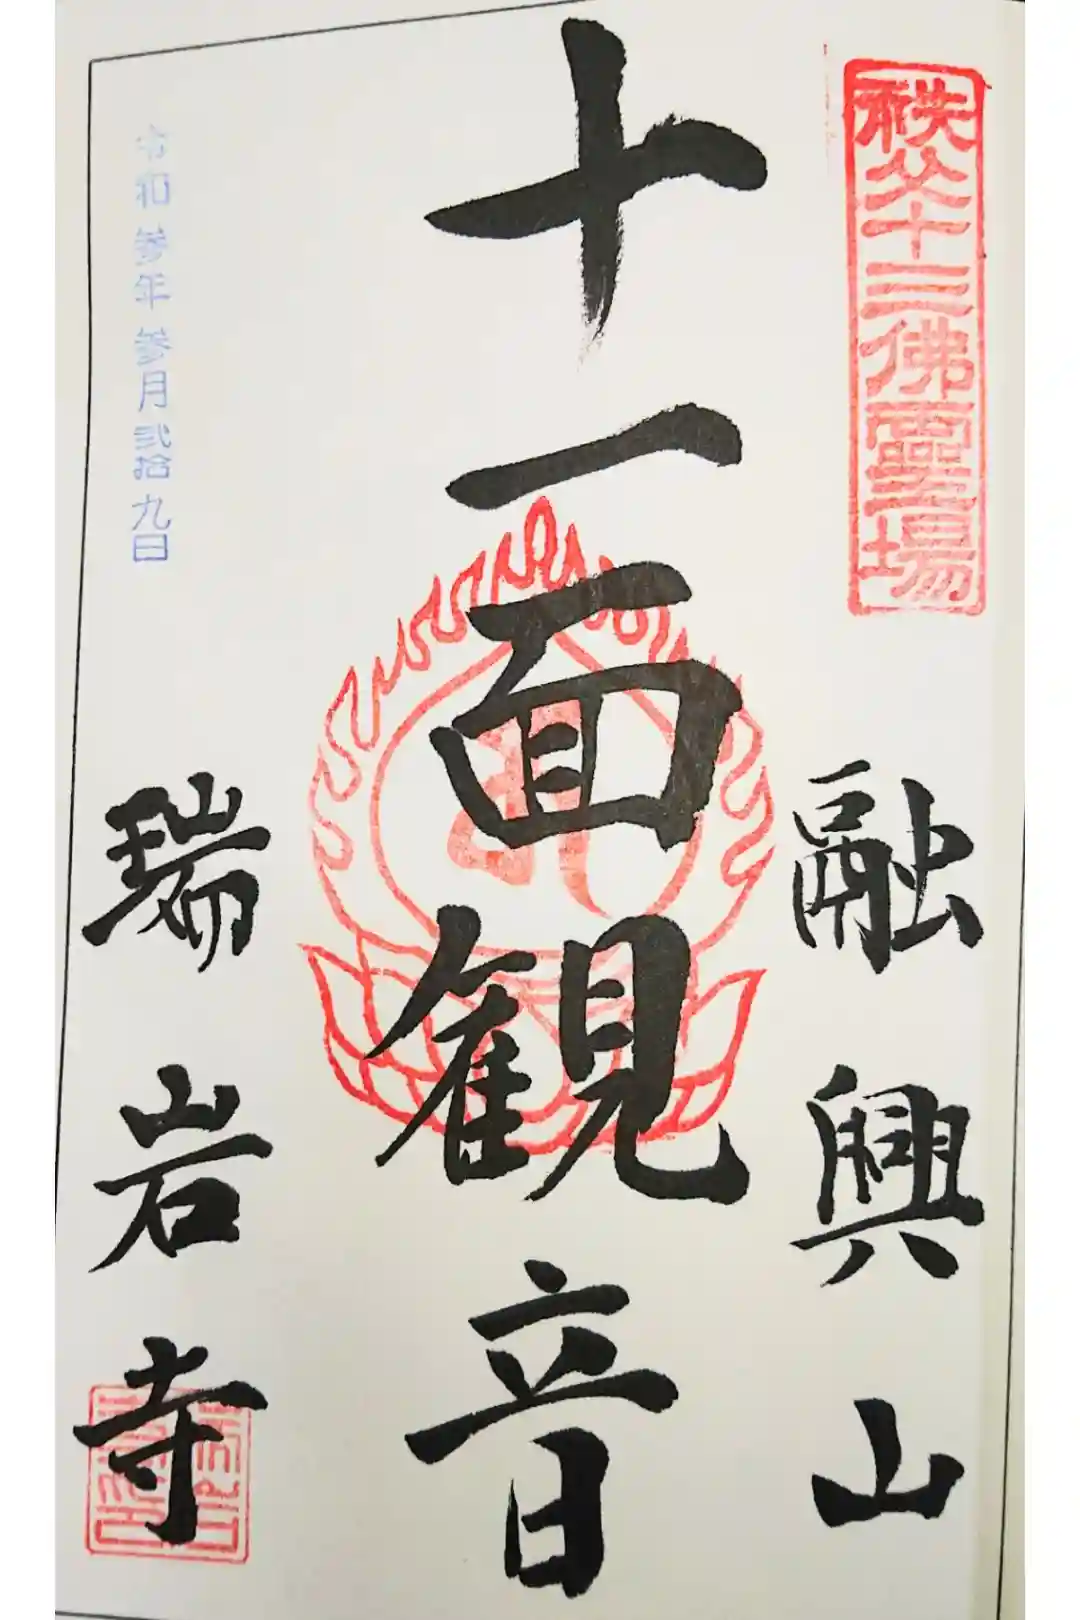 秩父十三佛霊場
融興山
十一面観音
瑞岩寺
令和参年参月弐拾九日